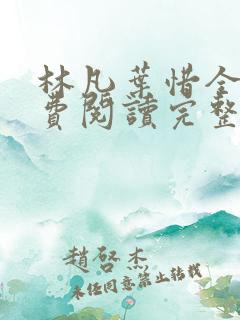 林凡葉惜全
費閱讀完整
趙啓杰
未经同意禁止转载